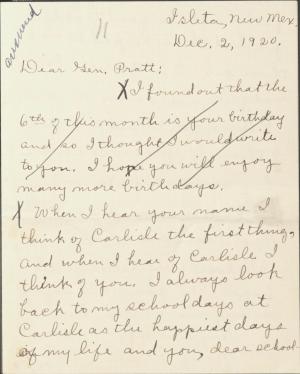 answered
11
Isleta, New Mex.
Dec. 2, 1920.
Dear Gen. Pratt:
X I found out that the
6th of this month is your birthday
and so I thought I would write
to you. I hope you will enjoy
many more birthdays.
X When I hear your name I
think of Carlisle the first thing,
and when I hear of Carlisle I
think of you. I always look
back to my school days at
Carlisle as the happiest days
of my life and you, dear school